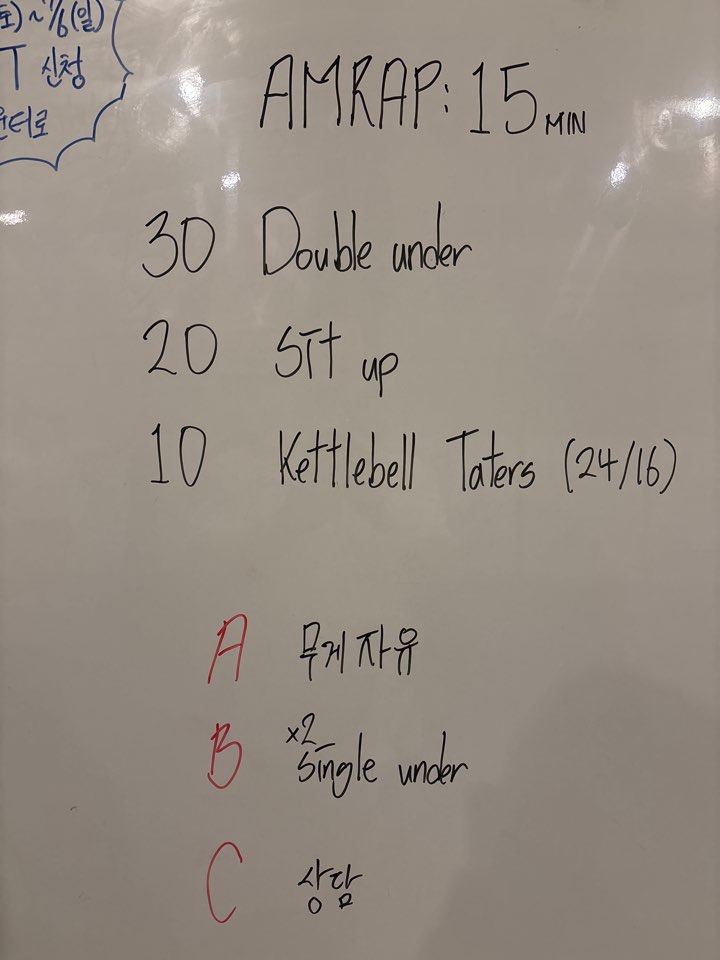 ~ 7/6(일)
T 신청
터로
AMRAP: 15 MIN
30 Double under
20 Sit up
10 Kettlebell Taters (24/16)
A 무게 자유
B x2 Single under
C 상담